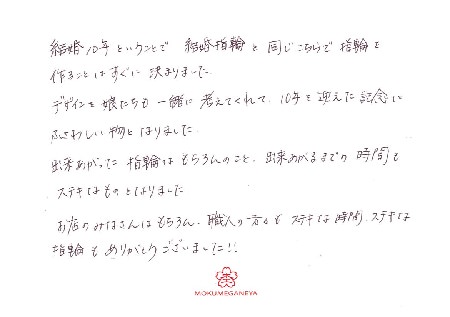 結婚10年ということで 結婚指輪と同じこちらで指輪を
作ることはすぐに決まりました。
デザインを娘たちも一緒に考えてくれて、10年を迎えた記念に
ふさわしい物となりました。
出来あがった指輪はもちろんのこと、出来あがるまでの時間も
ステキなものとなりました
お店のみなさんはもちろん、職人の方々も ステキな時間、ステキな
指輪もありがとうございました!!
MOKUMEGANEYA